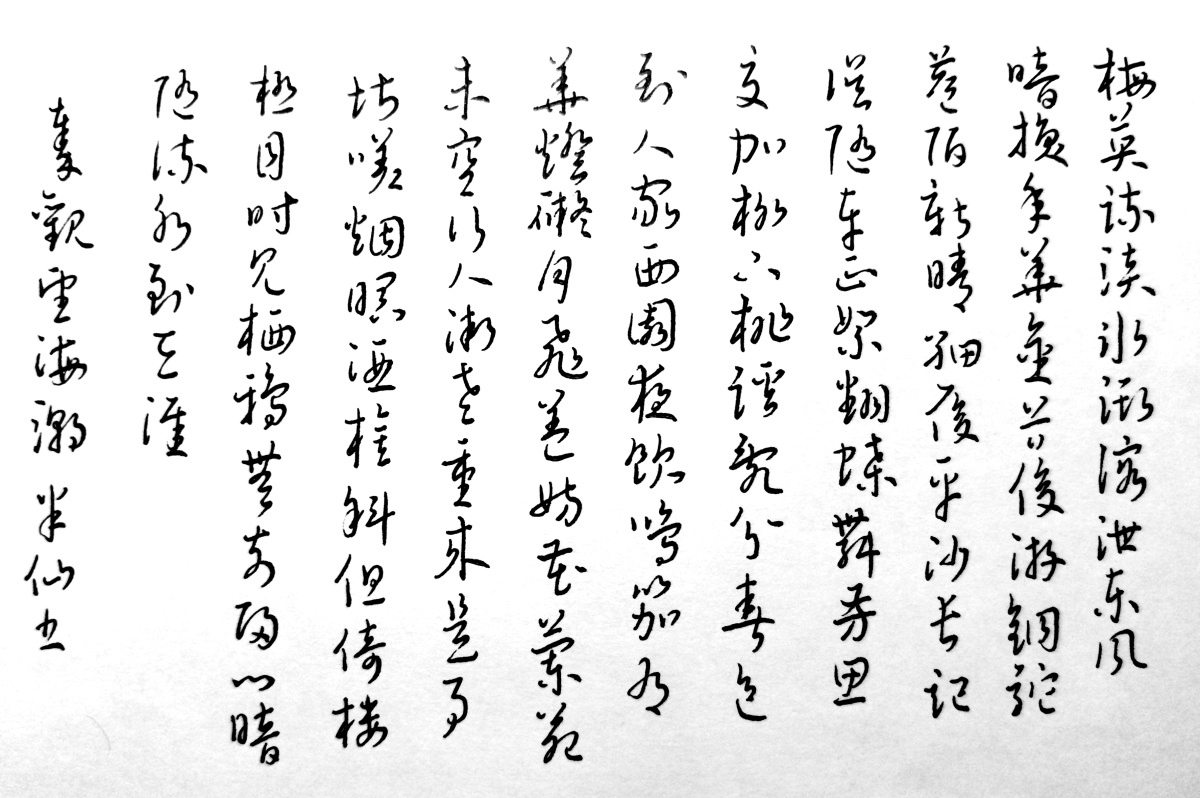 梅英疏淡冰澌溶泄东风
暗换年華金谷俊游銅駝
巷陌新晴細履平沙长記
误随车正絮翻蝶舞芳思
交加柳下桃蹊亂分春色
到人家西園夜飲鳴笳有
華燈礙月飛蓋妨花蘭苑
未空行人漸老重来是事
堪嗟烟暝酒旗斜但倚楼
極目时见栖鴉無奈歸心暗
随流水到天涯
秦觀望海潮 半仙书